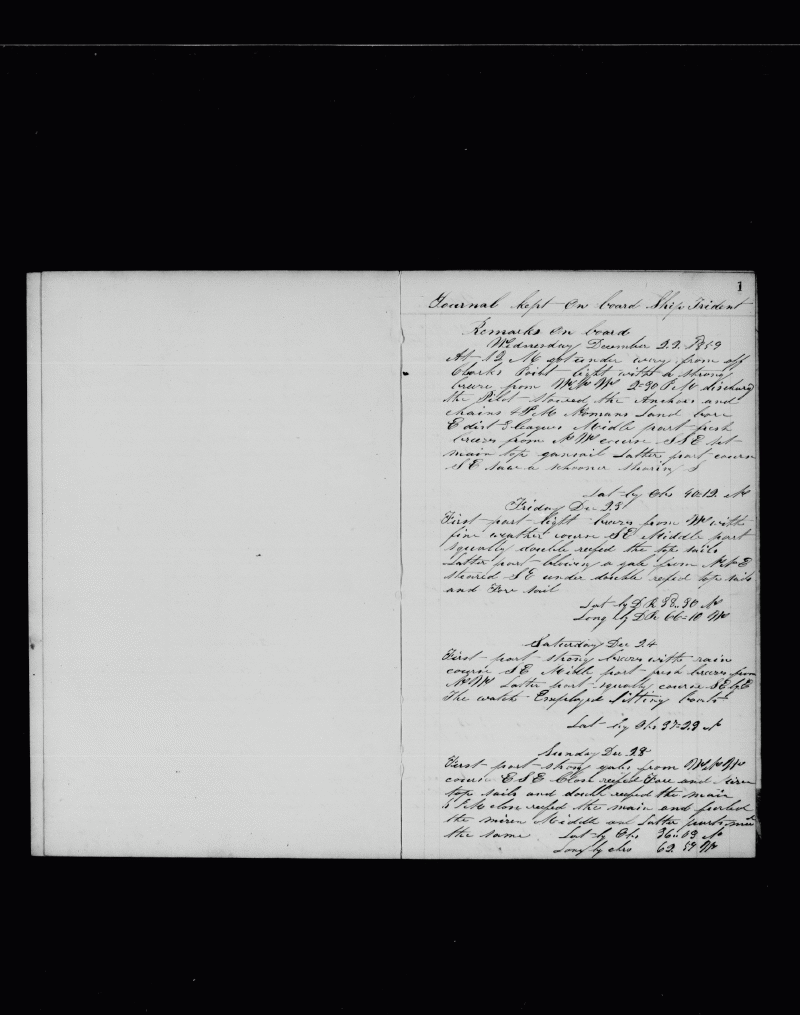 1
Journal kept on board Ship Trident
Remarks on board
Wednesday December 22 1859
At 12 M got under way from off
Clarks Point light with a strong
breeze from WNW 2-30 PM discharg
the Pilot stowed the Anchors and
chains 4 PM Nomans Land bore
E dist 3 leagues Midle part fresh
breezes from NW course SSE set
main top gansail Latter part course
SE saw a schooner stearing S
Lat by Obs 40-12 N
Friday Dec 23
First part light breezes from W with
fine weather course SE Middle part
squally double reefed the top sails
Latter part blowing a gale from NNE
steared SE under double refed top sails
and Fore sail
Lat by DR 38-30 N
Long by DR 66-10 W
Saturday Dec 24
First part strong breezes with rain
course SE Midle part fresh breezes from
NNW Latter part squally course SE by E
The watch Employed fitting boats
Lat by Obs 37-29 N
Sunday Dec 28
First part strong gales from WNW
course ESE Close reefed Fore and Mizen
top sails and doubl reefed the main
PM close reefed the main and furled
the mizen Middle an Latter parts
the same Lat by Obs 36-03 N
Long by obs 62 59 W